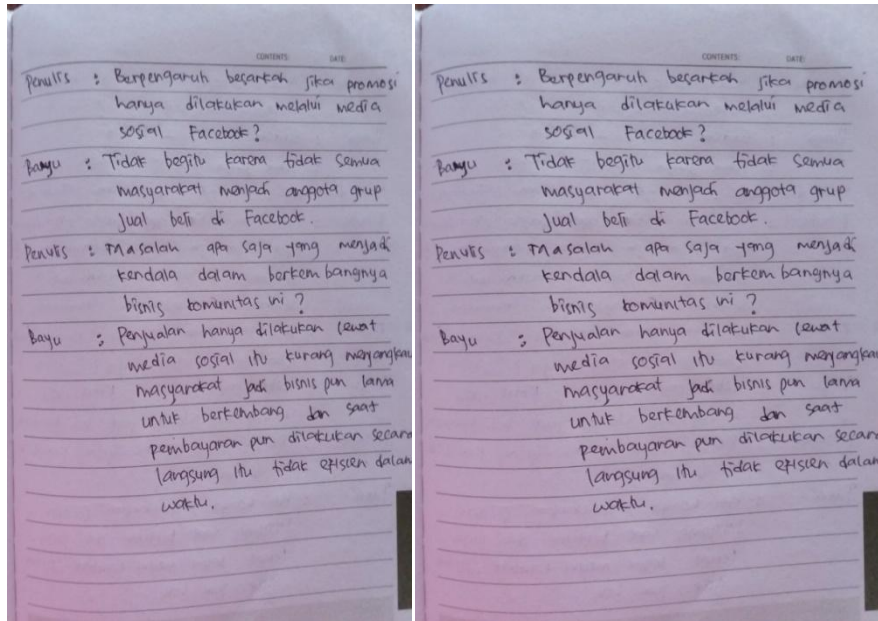 CONTENTS DATE
Penulis : Berpengaruh besarkah jika promosi
hanya dilakukan melalui media
sosial Facebook?
Bayu : Tidak begitu karena tidak semua
masyarakat menjadi anggota grup
jual beli di Facebook.
Penulis : Masalah apa saja yang menjadi
kendala dalam berkembangnya
bisnis komunitas ini ?
Bayu : Penjualan hanya dilakukan lewat
media sosial itu kurang menjangkau
masyarakat jadi bisnis pun lama
untuk berkembang dan saat
pembayaran pun dilakukan secara
langsung itu tidak efisien dalam
waktu.
CONTENTS DATE
Penulis : Berpengaruh besarkah jika promosi
hanya dilakukan melalui media
sosial Facebook?
Bayu : Tidak begitu karena tidak semua
masyarakat menjadi anggota grup
jual beli di Facebook.
Penulis : Masalah apa saja yang menjadi
kendala dalam berkembangnya
bisnis komunitas ini ?
Bayu : Penjualan hanya dilakukan lewat
media sosial itu kurang menjangkau
masyarakat jadi bisnis pun lama
untuk berkembang dan saat
pembayaran pun dilakukan secara
langsung itu tidak efisien dalam
waktu.